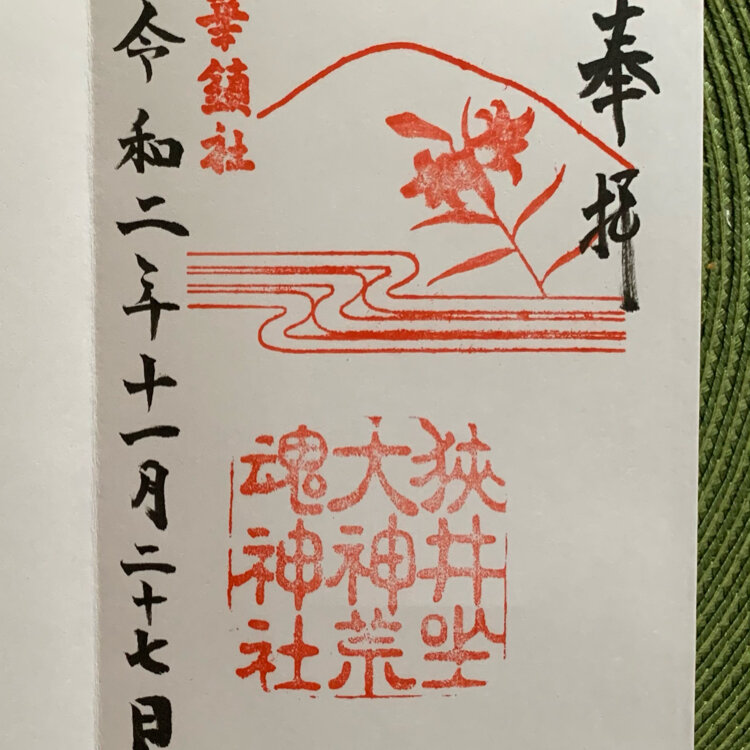 奉拝
華鎮社
狭井坐
大神荒
魂神社
令和二年十一月二十七日